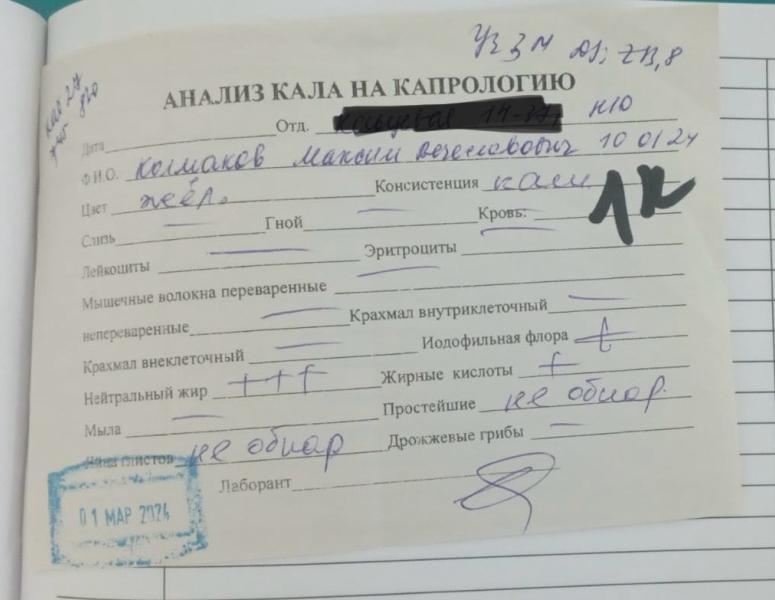 УЗЗМ
АНАЛИЗ КАЛА НА КАПРОЛОГИЮ
Дата Отд. н/о
Ф.И.О. Колмаков Максим 10 01 24
Цвет жёл. Консистенция каш 1к
Слизь — Гной — Кровь: —
Лейкоциты — Эритроциты —
Мышечные волокна переваренные —
непереваренные — Крахмал внутриклеточный —
Крахмал внеклеточный — Иодофильная флора +
Нейтральный жир +++ Жирные кислоты +
Мыла — Простейшие не обнар.
Яйца глистов не обнар Дрожжевые грибы —
Лаборант
01 МАР 2024